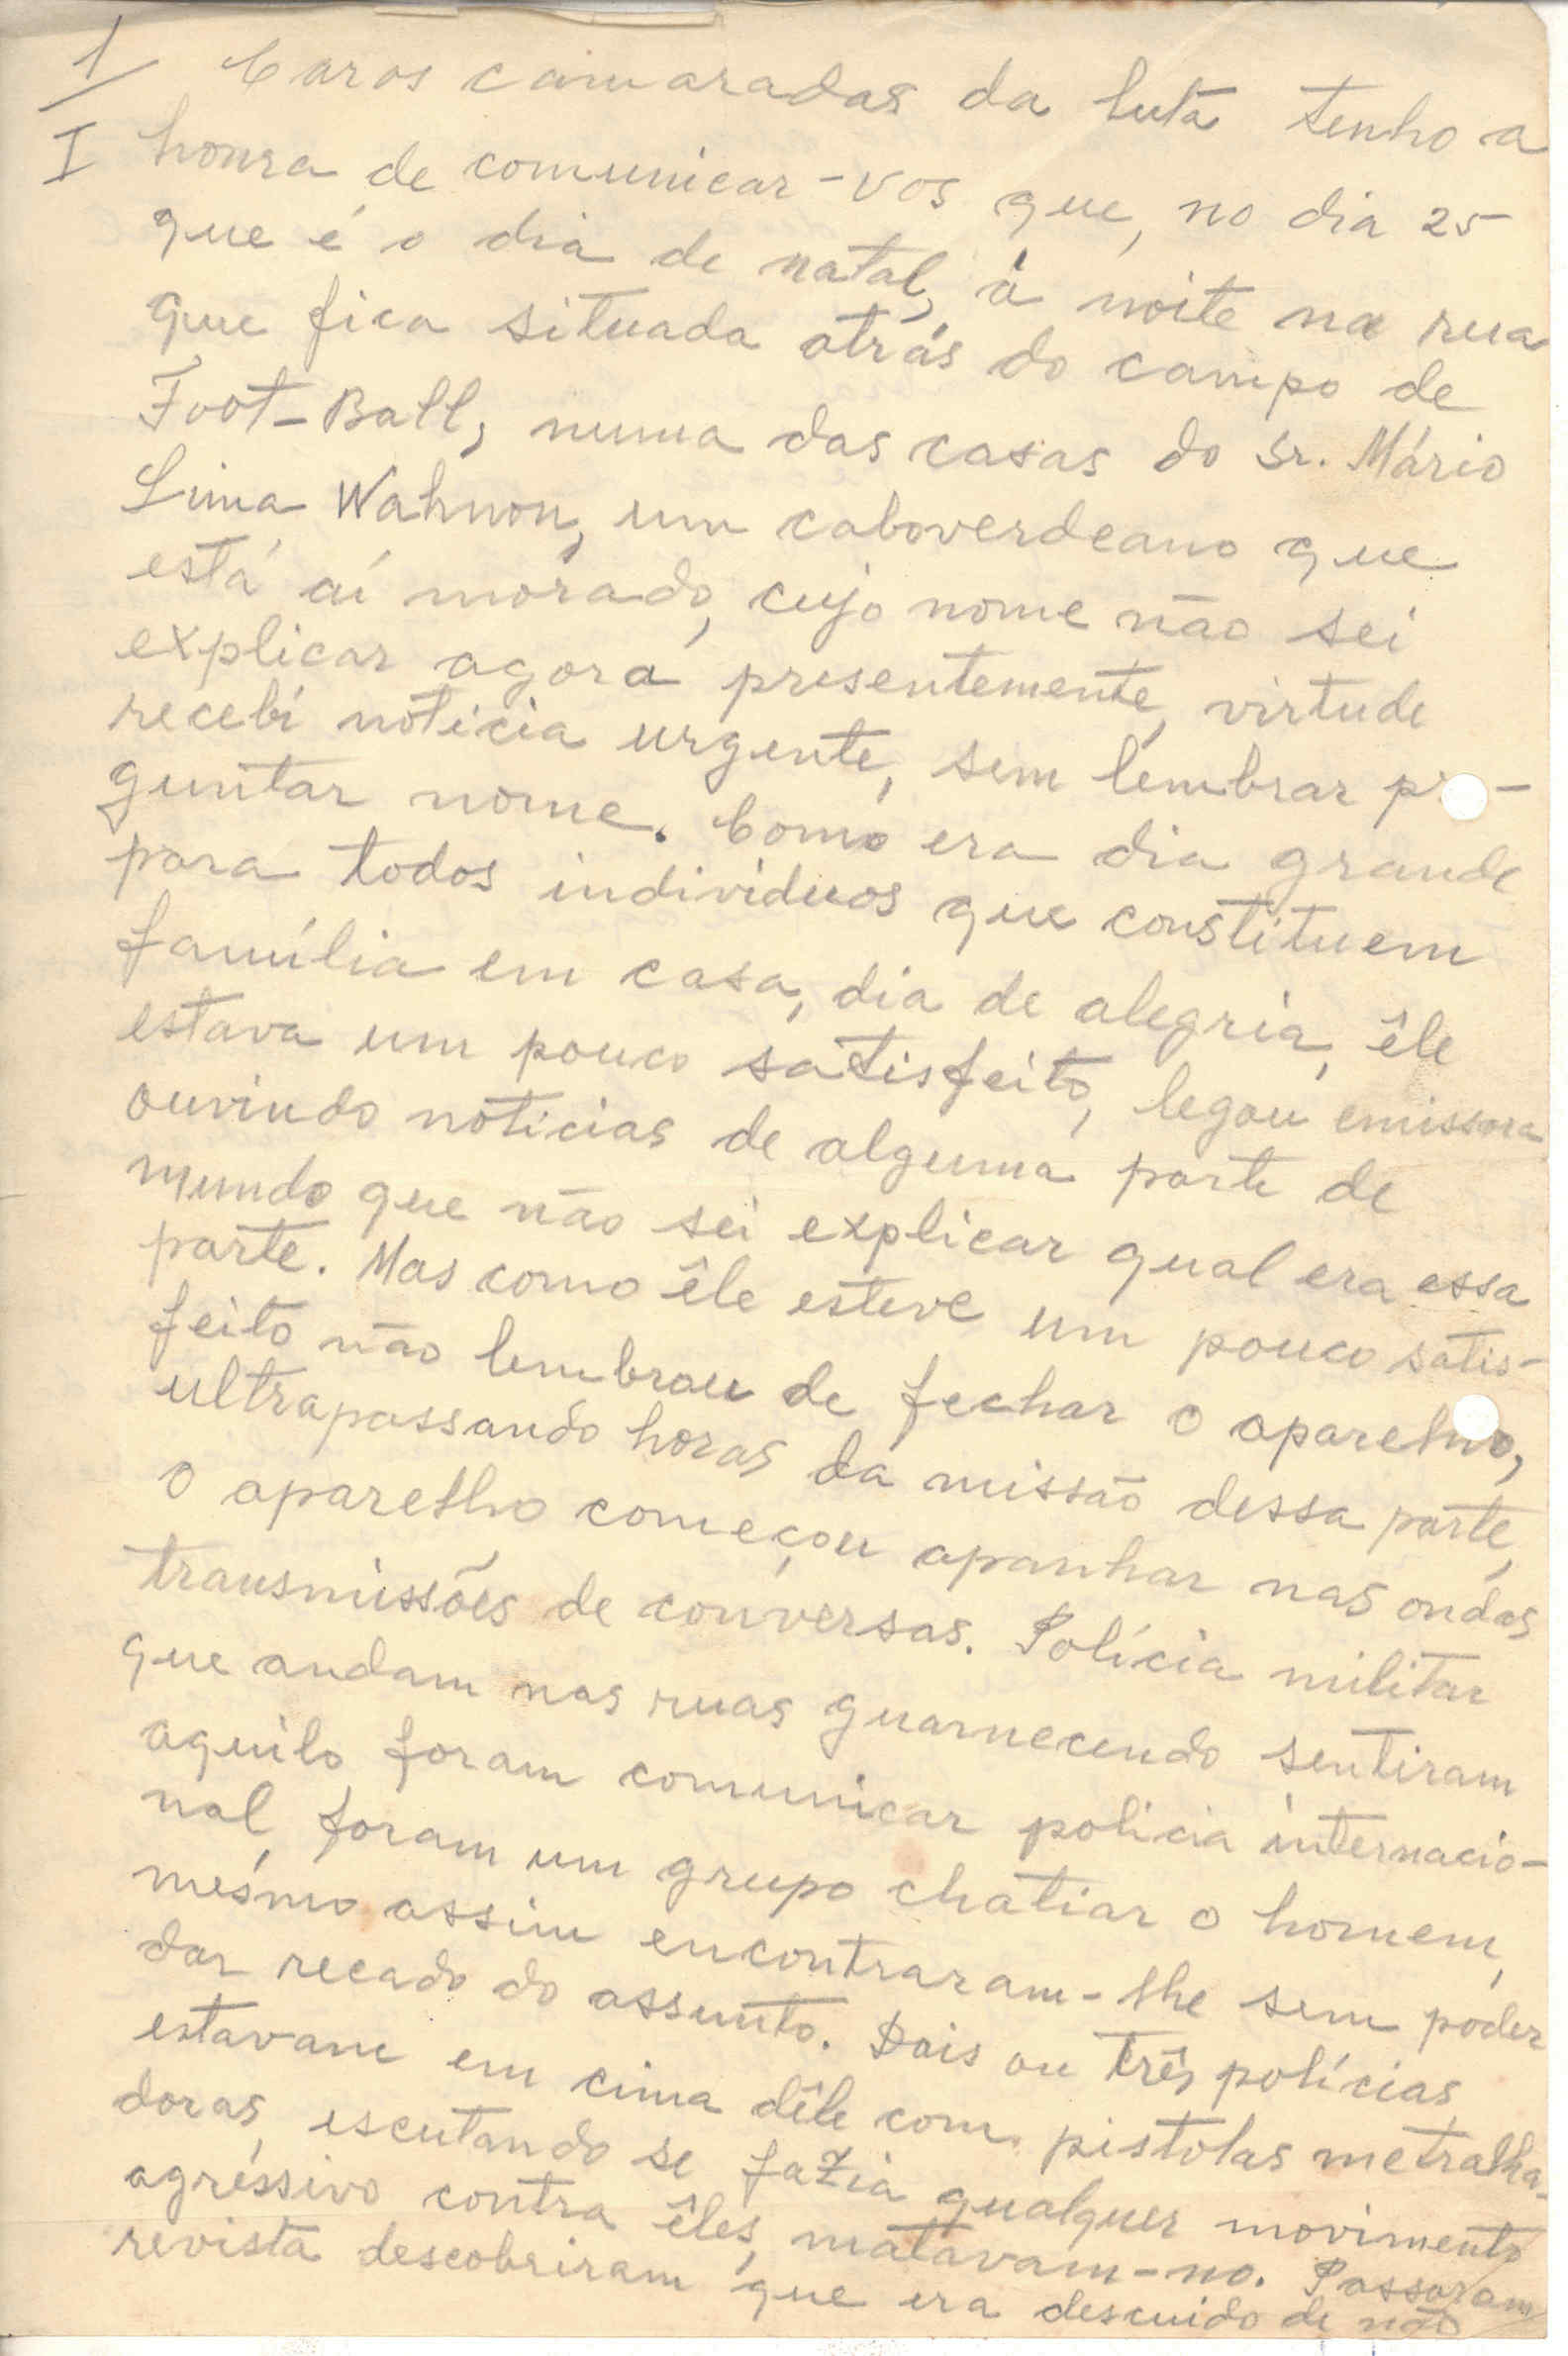 1/ Caros camaradas da luta tenho a
I honra de comunicar-vos que, no dia 25
que é o dia de natal, à noite na rua
que fica situada atrás do campo de
Foot-Ball, numa das casas do Sr. Mário
Lima Wahnon, um caboverdeano que
está aí morado, cujo nome não sei
explicar agora presentemente, virtude
recebi noticia urgente, sem lembrar pr-
guntar nome. Como era dia grande
para todos individuos que constituem
família em casa, dia de alegria, êle
estava um pouco satisfeito, legou emissora
ouvindo noticias de alguma parte de
mundo que não sei explicar qual era essa
parte. Mas como êle esteve um pouco satis-
feito não lembrou de fechar o aparelho,
ultrapassando horas da missão dessa parte,
o aparelho começou apanhar nas ondas
transmissões de conversas. Polícia militar
que andam nas ruas guarnecendo sentiram
aquilo, foram comunicar policia internacio-
nal, foram um grupo chatiar o homem,
mesmo assim encontraram-lhe sem poder
dar recado do assunto. Dois ou três polícias
estavam em cima dêle com pistolas metralha-
doras, escutando se fazia qualquer movimento
agréssivo contra êles, matavam-no. Passaram
revista descobriram que era descuido de não